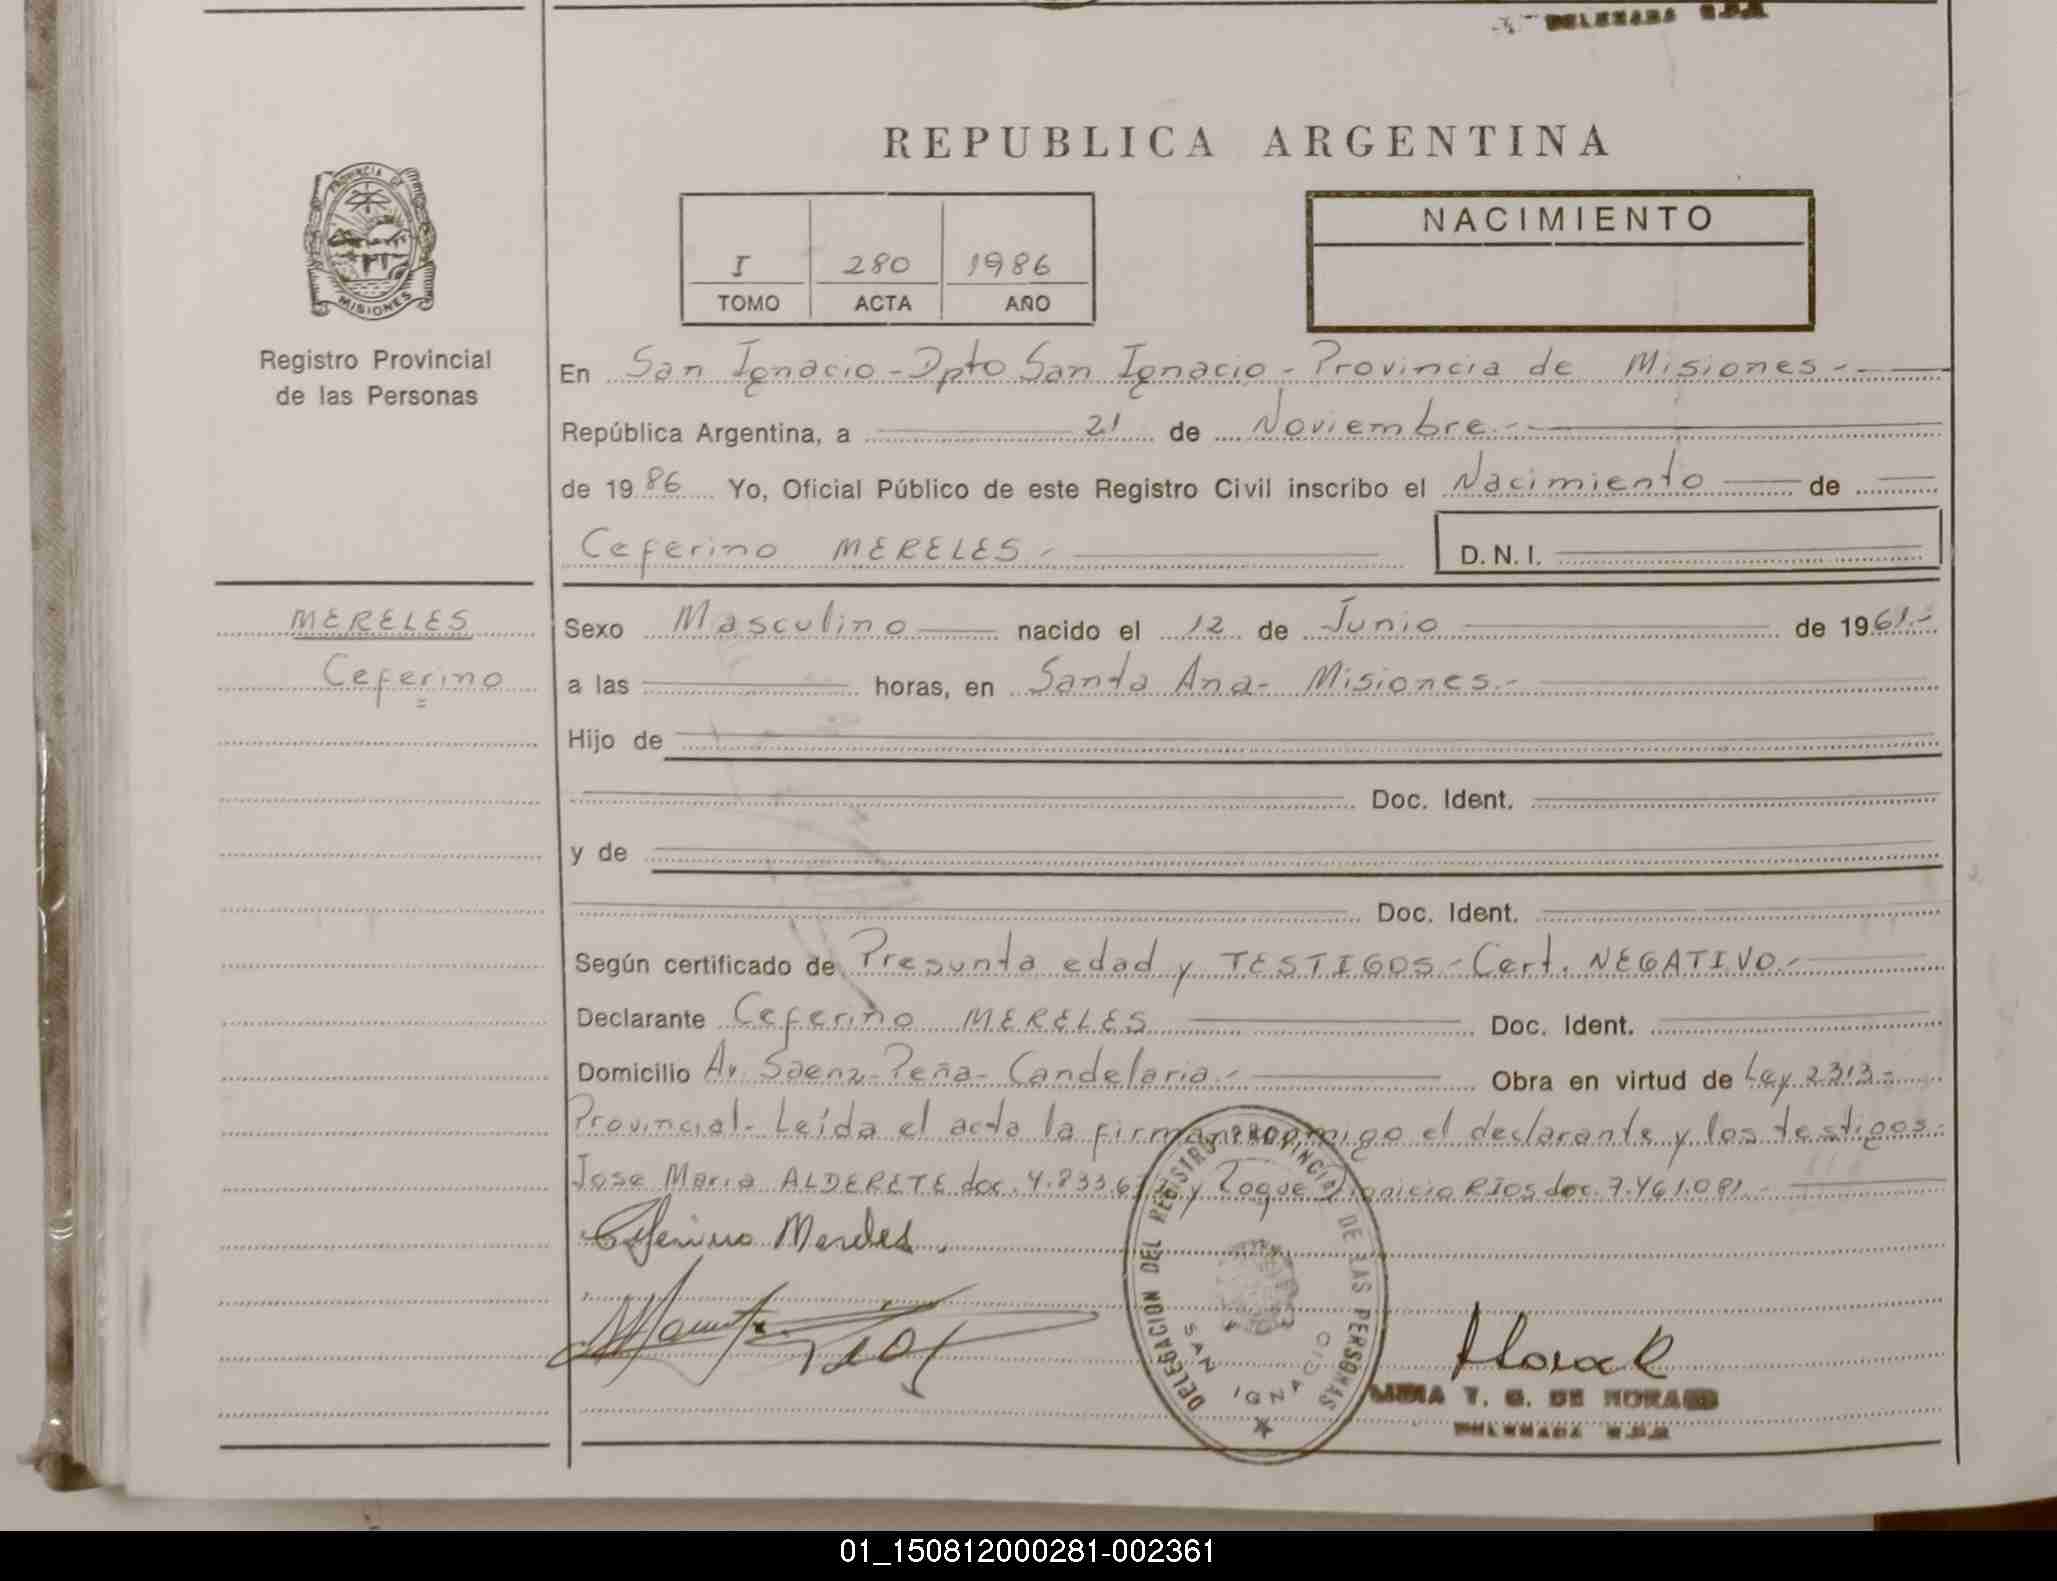 DELEGADA R.P.P.
REPUBLICA ARGENTINA
PROVINCIA DE
MISIONES
NACIMIENTO
I 280 1986
TOMO ACTA AÑO
Registro Provincial
de las Personas
En San Ignacio - Dpto San Ignacio - Provincia de Misiones.-
República Argentina, a 21 de Noviembre.-
de 1986 Yo, Oficial Público de este Registro Civil inscribo el Nacimiento de
Ceferino MERELES.-
D. N. I.
MERELES
Ceferino
Sexo Masculino nacido el 12 de Junio de 1961.-
a las horas, en Santa Ana- Misiones.-
Hijo de
Doc. Ident.
y de
Doc. Ident.
Según certificado de Presunta edad y TESTIGOS - Cert. NEGATIVO.-
Declarante Ceferino MERELES Doc. Ident.
Domicilio Av. Saenz Peña - Candelaria.- Obra en virtud de Ley 2313.-
Provincial- Leída el acta la firman conmigo el declarante y los testigos:
Jose Maria ALDERETE doc. y Roque RIOS doc. 7.461.081.-
Ceferino Mereles.
DELEGACION DEL REGISTRO PROVINCIAL DE LAS PERSONAS
SAN IGNACIO
T. G. DE MORA
DELEGADA R.P.P.
01_150812000281-002361